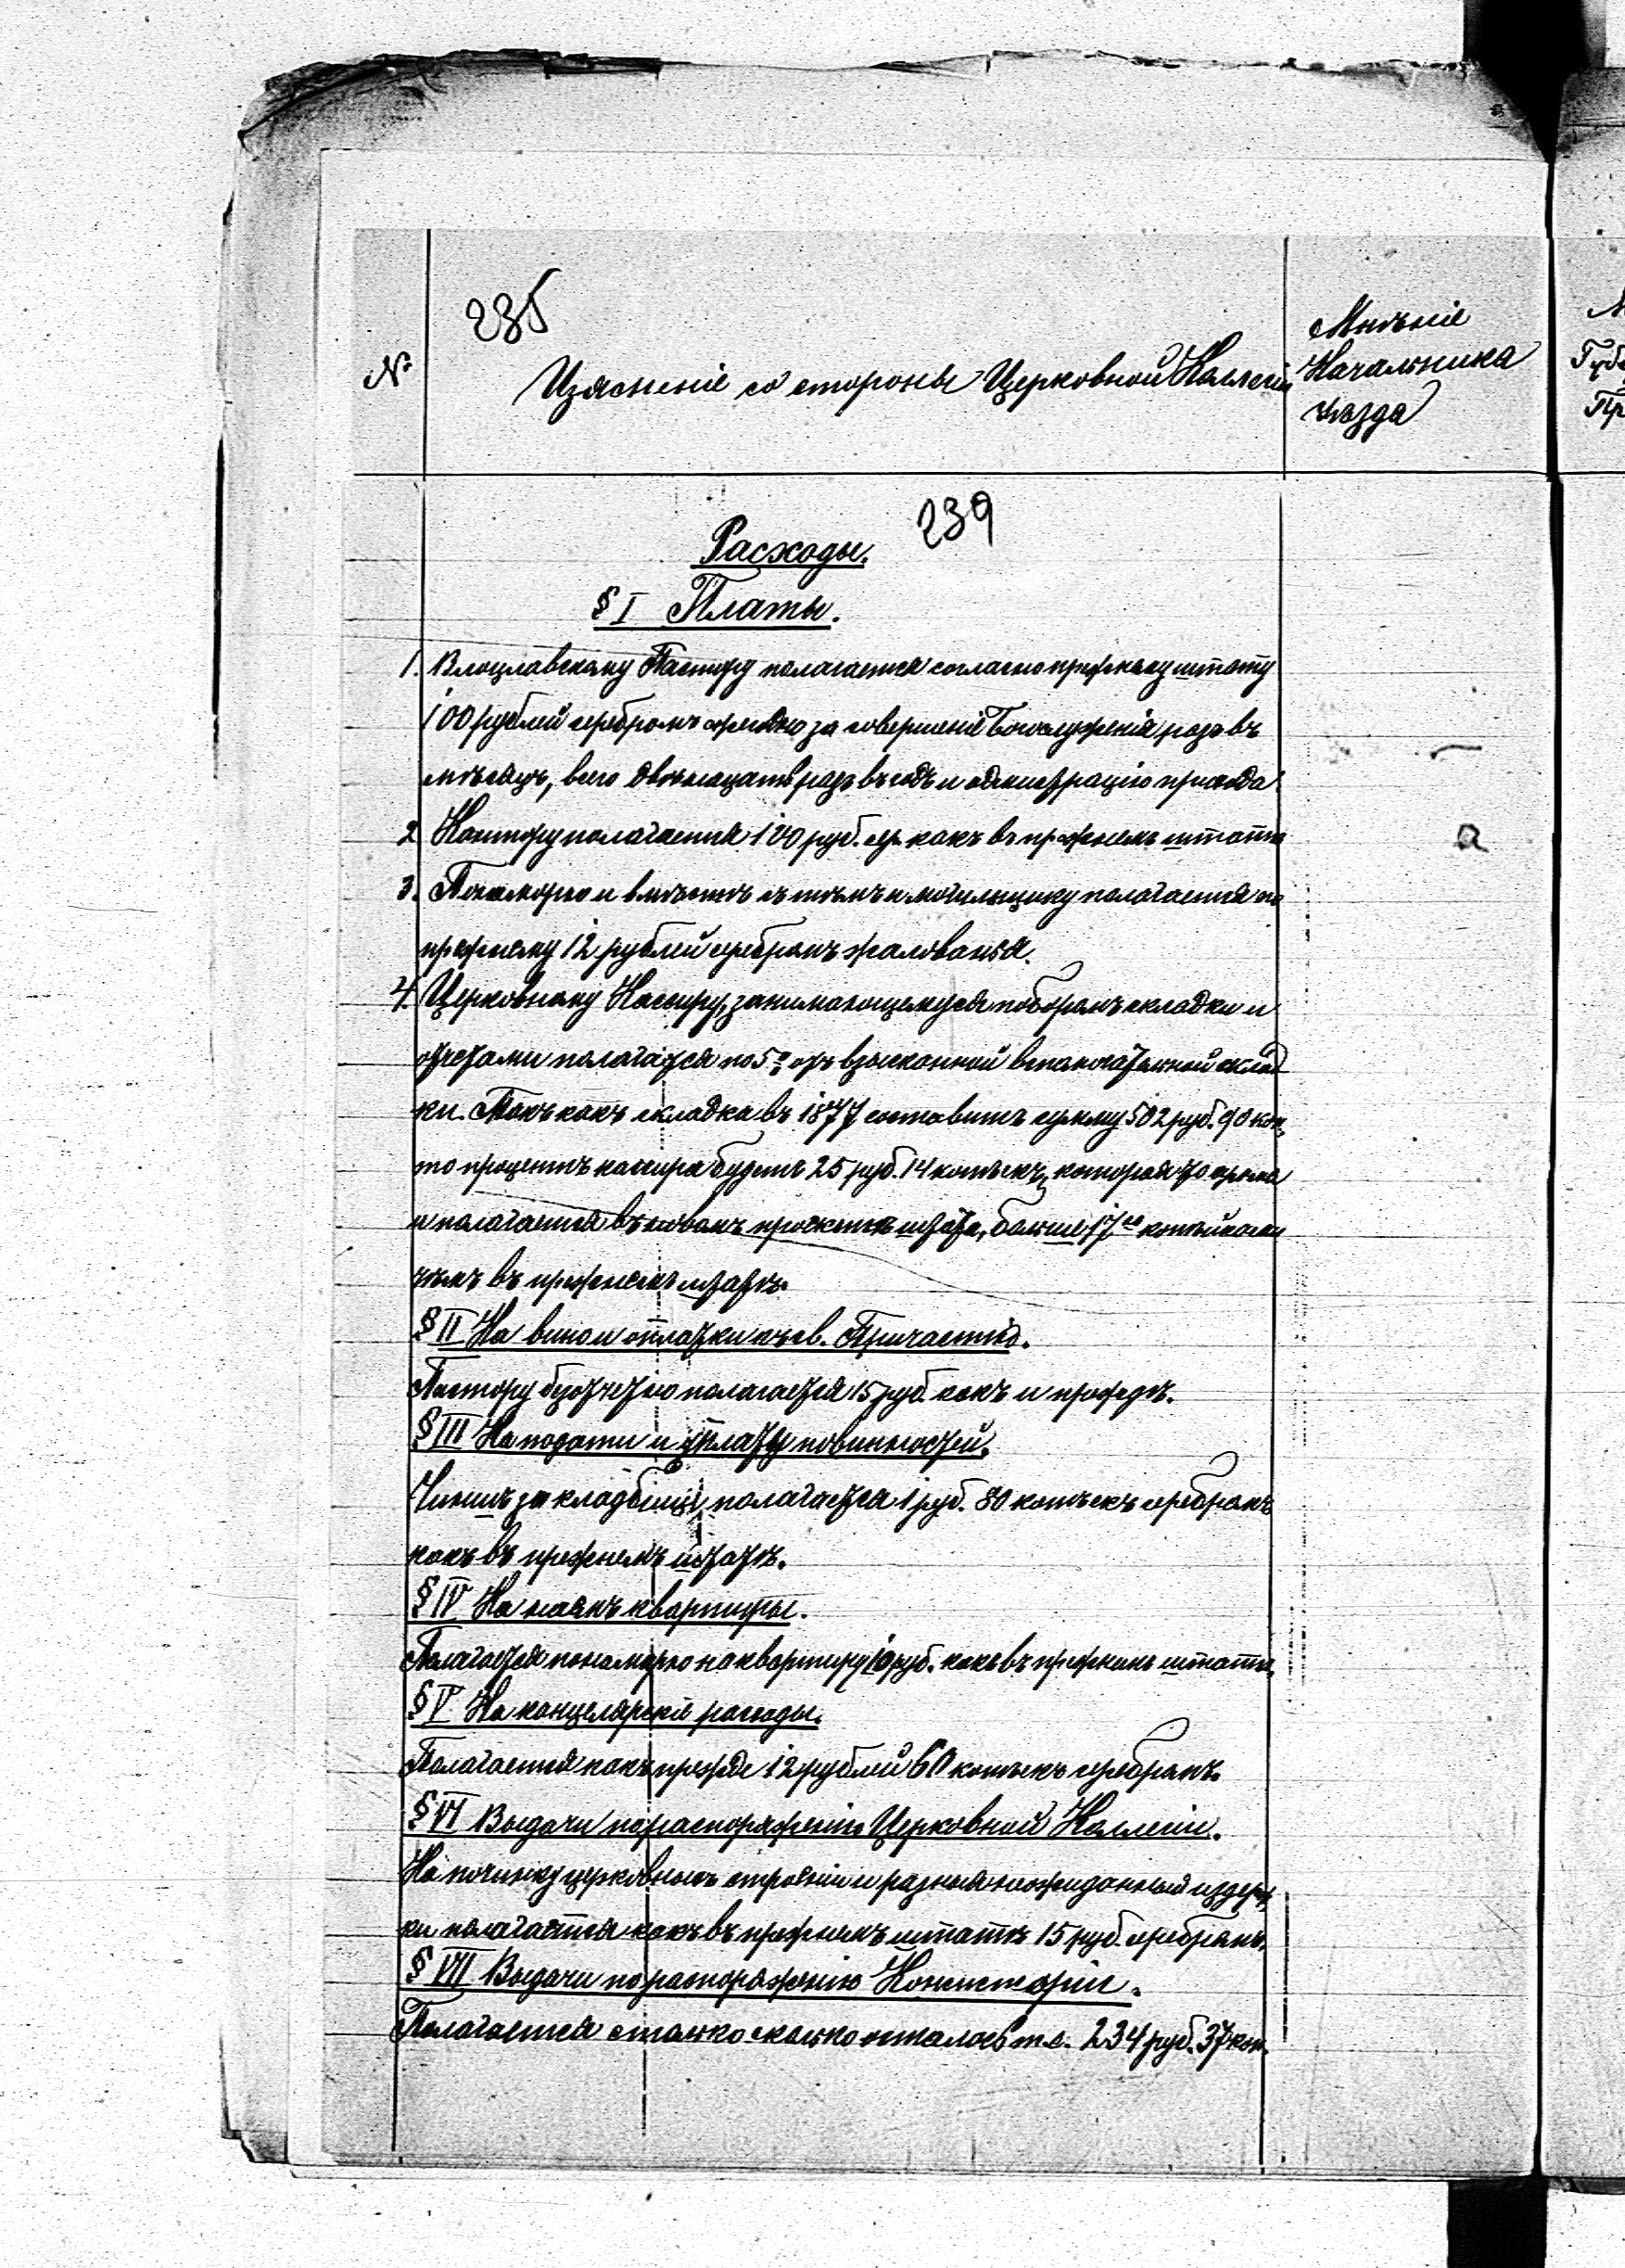 235
№
Изясненіе со стороны Церковной Коллегіи
Мнѣніе
Начальника
уѣзда
Губе
Пр
239
Расходы.
§ I Платы.
1. Влоцлавскому Пастору полагается согласно прежнему штату
100 рублей серебромъ за совершеніе Богослуженія разъ въ
мѣсяцъ, всего двѣнадцать разъ въ годъ и администрацію прихода
2. Кантору полагается 100 руб. сер. какъ въ прежнемъ штатѣ
3. Понаморю и вмѣстѣ съ тѣмъ и могильщику полагается по
прежнему 12 рублей серебромъ жалованья.
4. Церковному Кассиру, занимающемуся поборомъ складки и
отчетами полагается по 5% отъ взысканной вспомогательной склад
ки. Такъ какъ складка въ 1877 составитъ сумму 502 руб. 90 коп.,
то процентъ кассира будетъ 25 руб. 14 копѣекъ, которая то сумма
и полагается въ новомъ проектѣ штата, больше 17ю копѣйками
чѣмъ въ прежнемъ штатѣ.
§ II На вино и оплатки къ св. Причастію.
Пастору безотчетно полагается 15 руб. какъ и прежде.
§ III На подати и уплату повинностей.
Чиншъ за кладбище полагается 1 руб. 80 копѣекъ серебромъ
какъ въ прежнемъ штатѣ.
§ IV На наемъ квартиры.
Полагается понаморю на квартиру 10 руб. какъ въ прежнемъ штатѣ.
§ V На канцелярскіе расходы.
Полагается какъ прежде 12 рублей 60 копѣекъ серебромъ.
§ VI Выдачи по распоряженію Церковной Коллегіи.
На починку церковныхъ строеній и разныя неожиданныя издерж
ки полагается какъ въ прежнемъ штатѣ 15 руб. серебромъ.
§ VII Выдачи по распоряженію Консисторіи.
Полагается столько сколько осталось т.е. 234 руб. 37 коп.